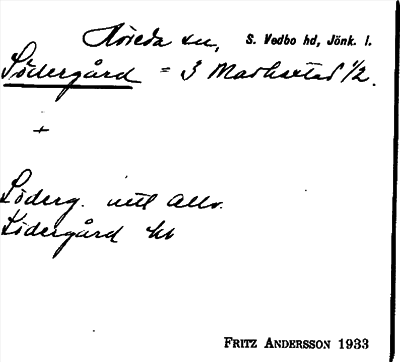 Höreda sn, S. Vedbo hd, Jönk. l.
Södergård = 3 Markestad 1/2.
+
Söderg. utt allm.
Södergård hb
FRITZ ANDERSSON 1933